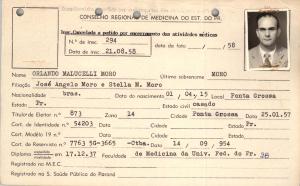 CONSELHO REGIONAL DE MEDICINA DO EST. DO PR.
Insc. Cancelada a pedido por encerramento das atividades médicas
N.o de insc. 294 data do fato / / 58
Data de insc. 21.08.58
Nome ORLANDO MALUCELLI MORO Último sobrenome MORO
Filiação José Angelo Moro e Stella M. Moro
Nacionalidade bras. Data do nascimento 01 / 04 / 15 Local Ponta Grossa
Estado Pr. Estado civil casado
Título de Eleitor n.o 873 Zona 14 Cidade Ponta Grossa 25.01.57
Cart. de Identidade n.o 54203 Estado Pr.
Cart. Modelo 19 n.o
Cart. de Reservista n.o 7763 5G-3665 -Ctba. 14 / 09 / 954
Diploma 17.12.37 Faculdade de Medicina da Univ. Fed. do Pr.
Registrado no M.E.C.
Registrado na S. Saúde Pública do Paraná